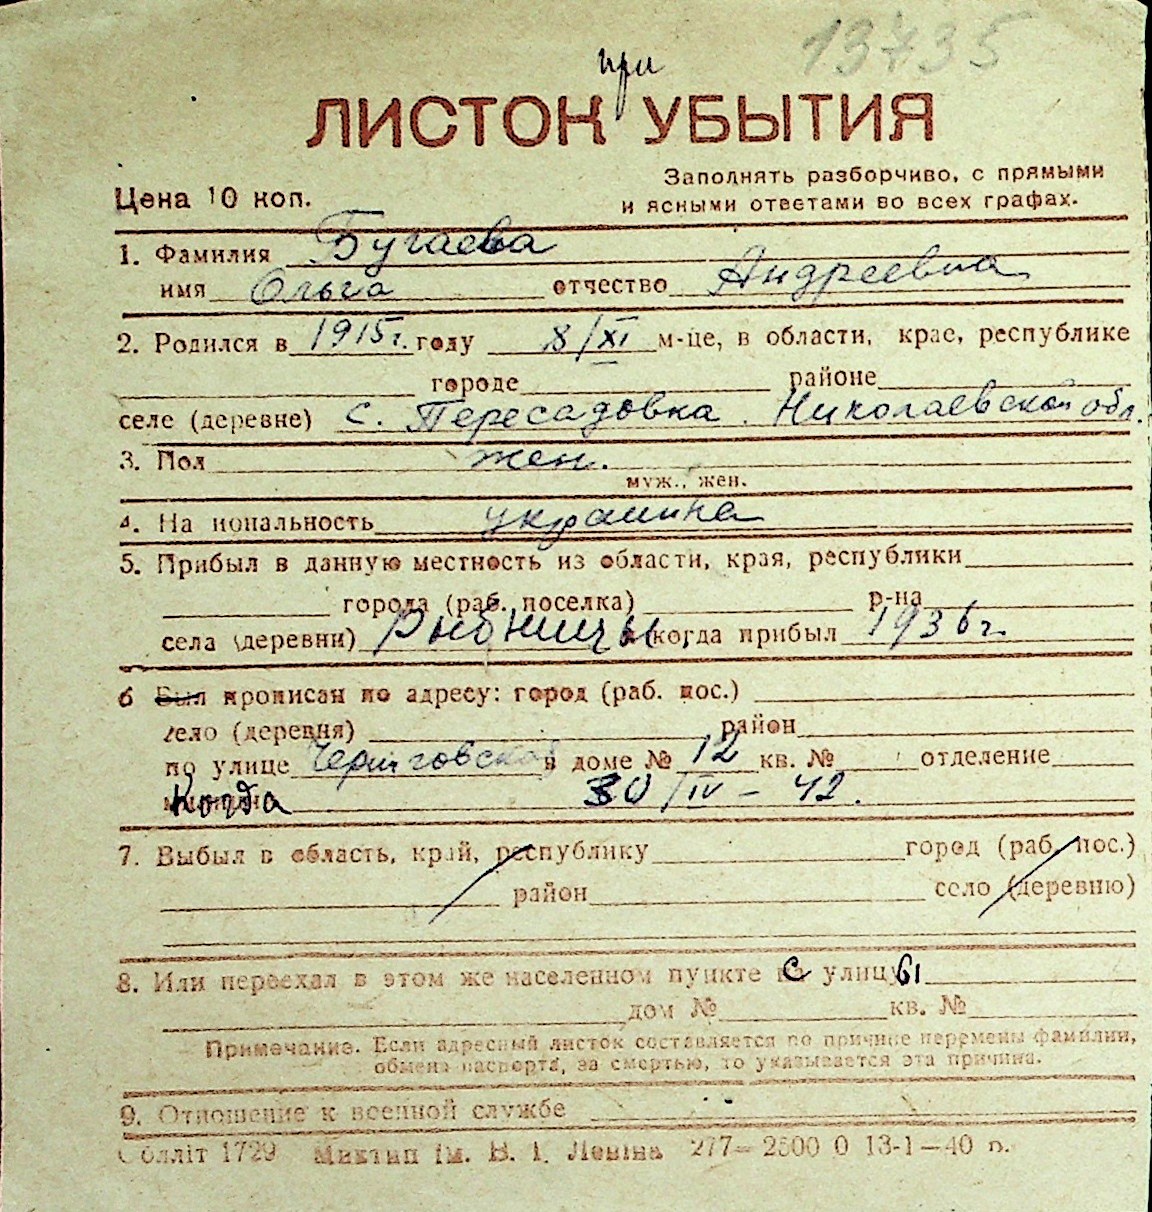 13735
при
ЛИСТОК УБЫТИЯ
Заполнять разборчиво, с прямыми
Цена 10 коп.
и ясными ответами во всех графах.
1. Фамилия Бугаева
имя Ольга отчество Андреевна
2. Родился в 1915г. году 8/XI м-це, в области, крае, республике
городе районе
селе (деревне) с. Пересадовка. Николаевской обл.
3. Пол жен.
муж., жен.
4. На иональность украинка
5. Прибыл в данную местность из области, края, республики
города (раб. поселка) р-на
села (деревни) Рыбницы, когда прибыл 1936г.
6 Был прописан по адресу: город (раб. пос.)
село (деревня) район
по улице Черниговской в доме № 12 кв. № отделение
Когда 30/IV – 42.
7. Выбыл в область, край, республику город (раб. пос.)
район село (деревню)
8. Или переехал в этом же населенном пункте с улицы
дом № кв. №
Примечание. Если адресный листок составляется по причине перемены фамилии,
обмена паспорта, за смертью, то указывается эта причина.
9. Отношение к военной службе
Облліт 1729 Миктип ім. В. І. Леніна 277—2500 0 13-1—40 р.